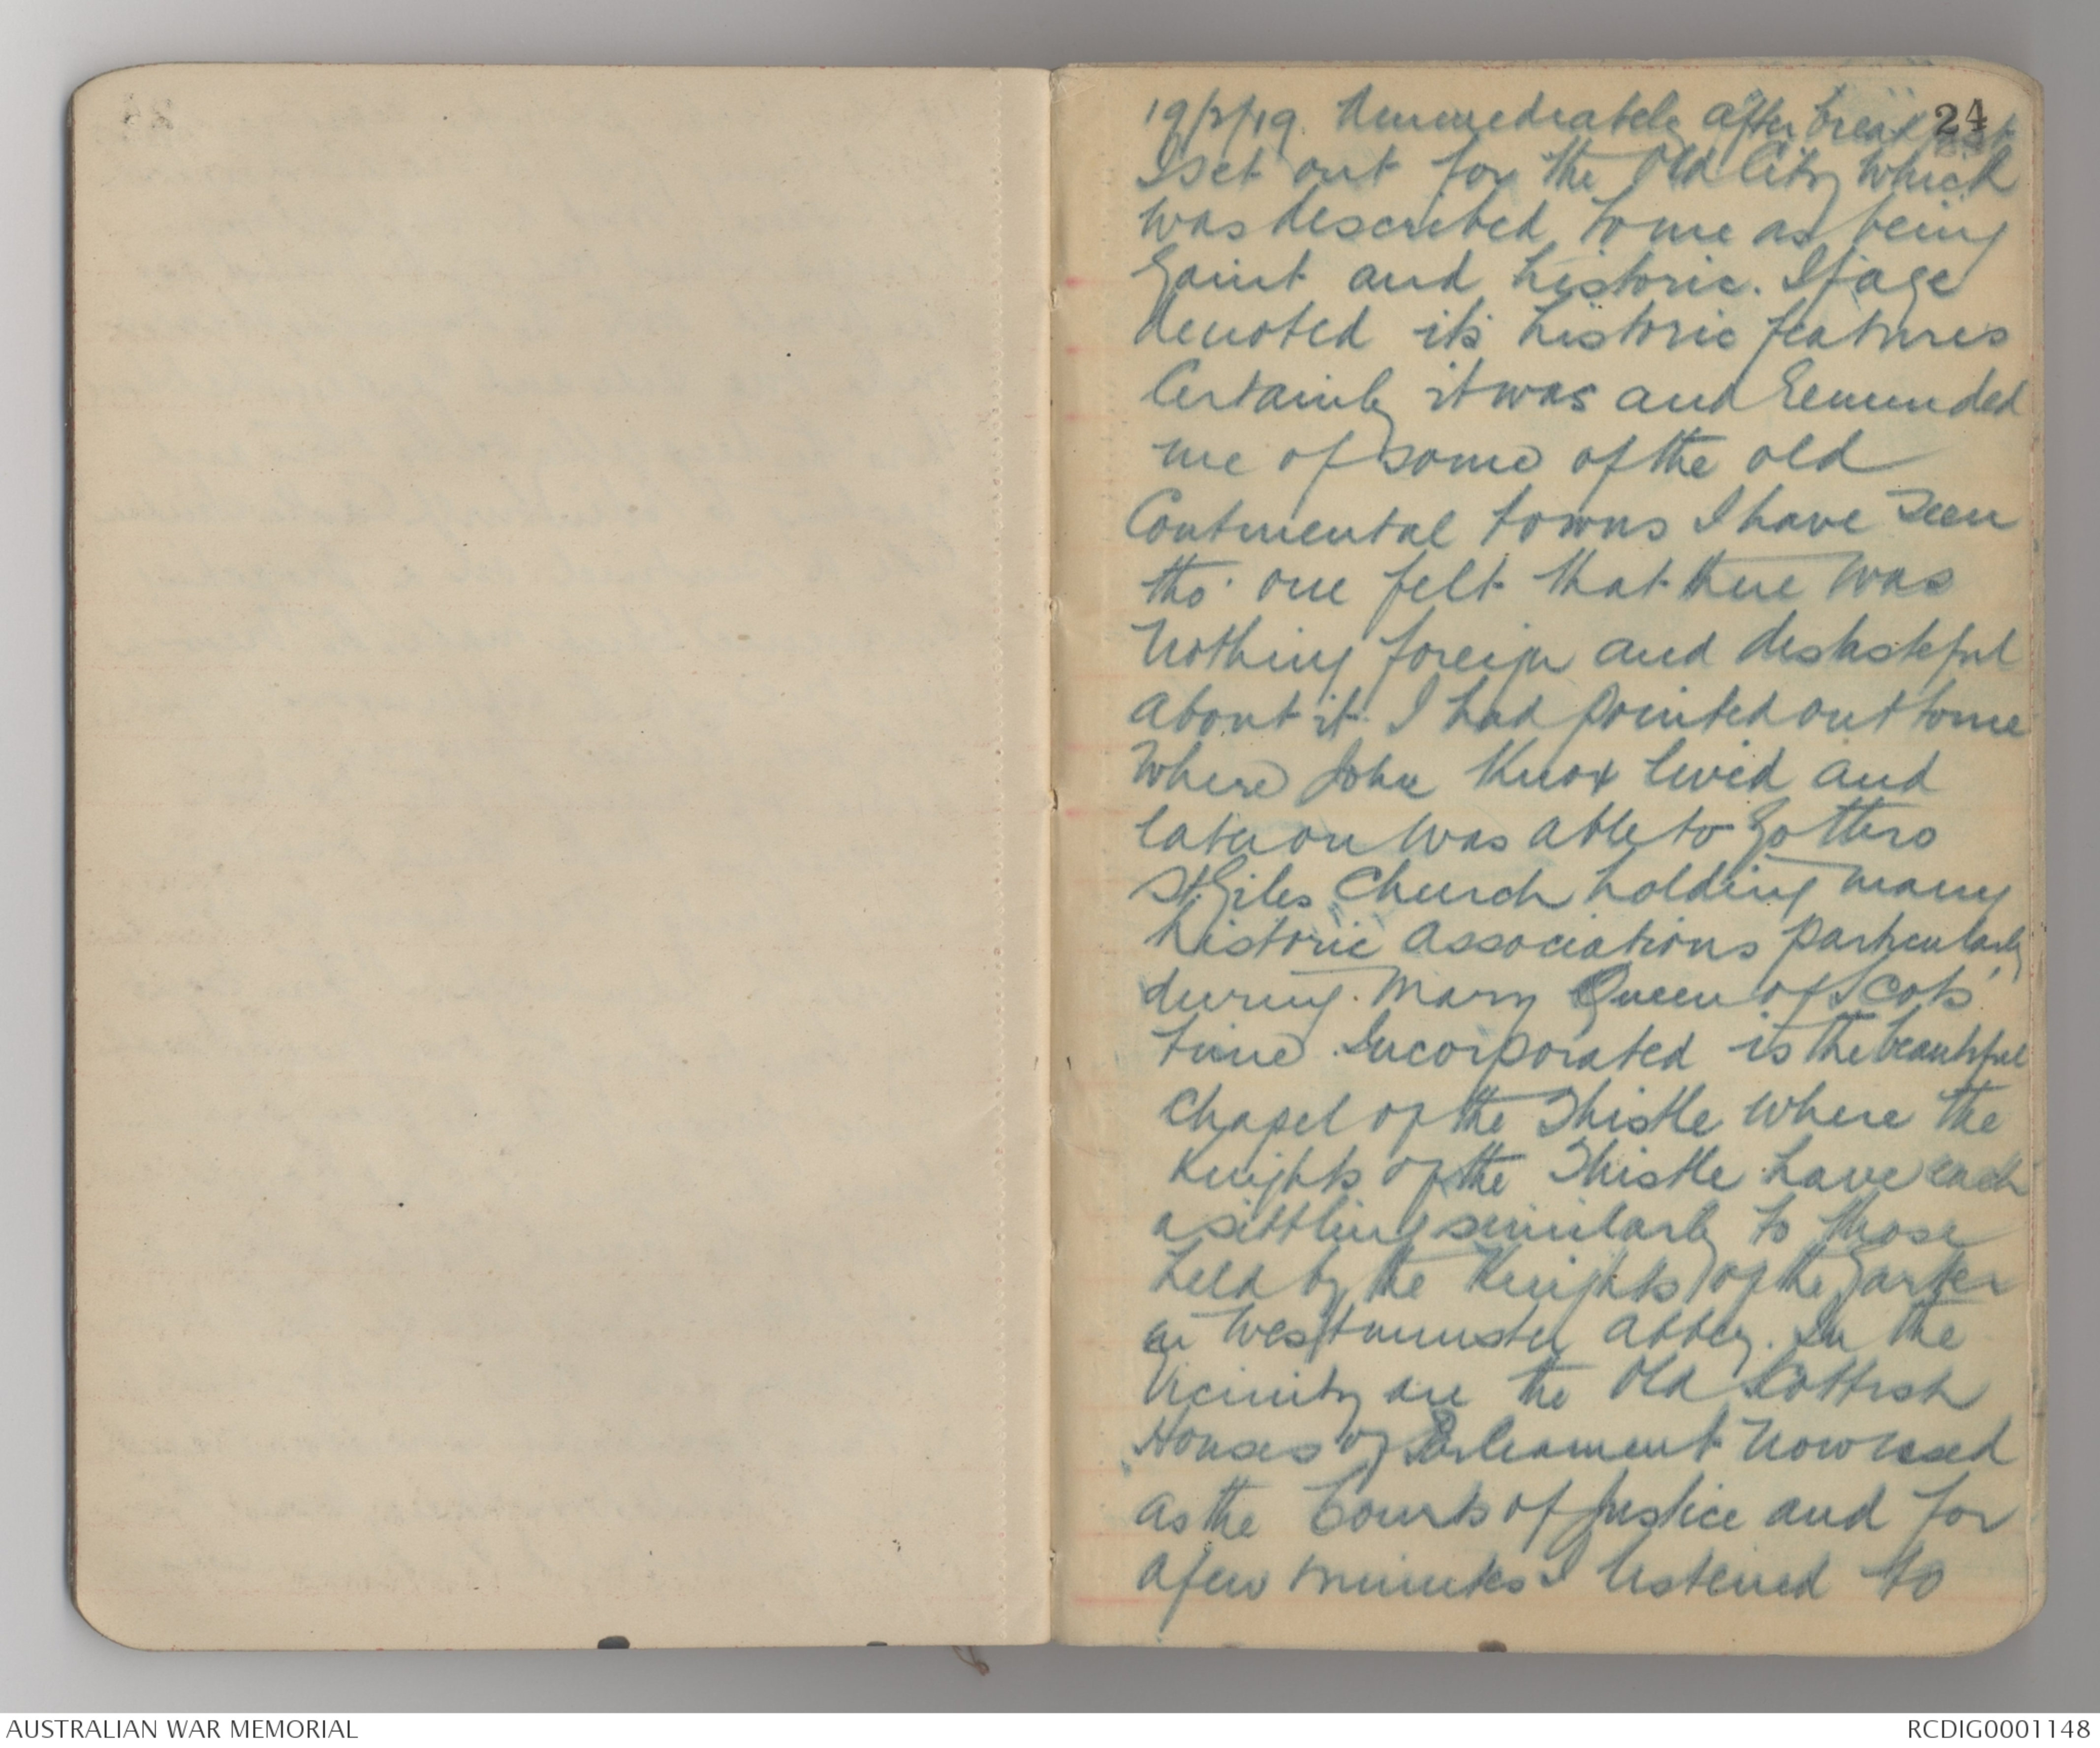 24
19/2/19. Immediately after breakfast
I set out for the Old City which
was described to me as being
Gaint and historic. If age
denoted its historic features
Certainly it was and reminded
me of some of the old
Continental towns I have seen
tho' one felt that there was
nothing foreign and distasteful
about it. I had pointed out to me
where John Knox lived and
later on was able to go thro
St Giles Church holding many
historic associations particularly
during Mary Queen of Scots'
time. Incorporated is the beautiful
Chapel of the Thistle where the
Knights of the Thistle have each
a sittling similarly to those
held by the Knights of the Garter
in Westminster Abbey. In the
Vicinity are the Old Scottish
Houses of Parliament now used
as the Courts of Justice and for
a few minutes I listened to
AUSTRALIAN WAR MEMORIAL
RCDIG0001148